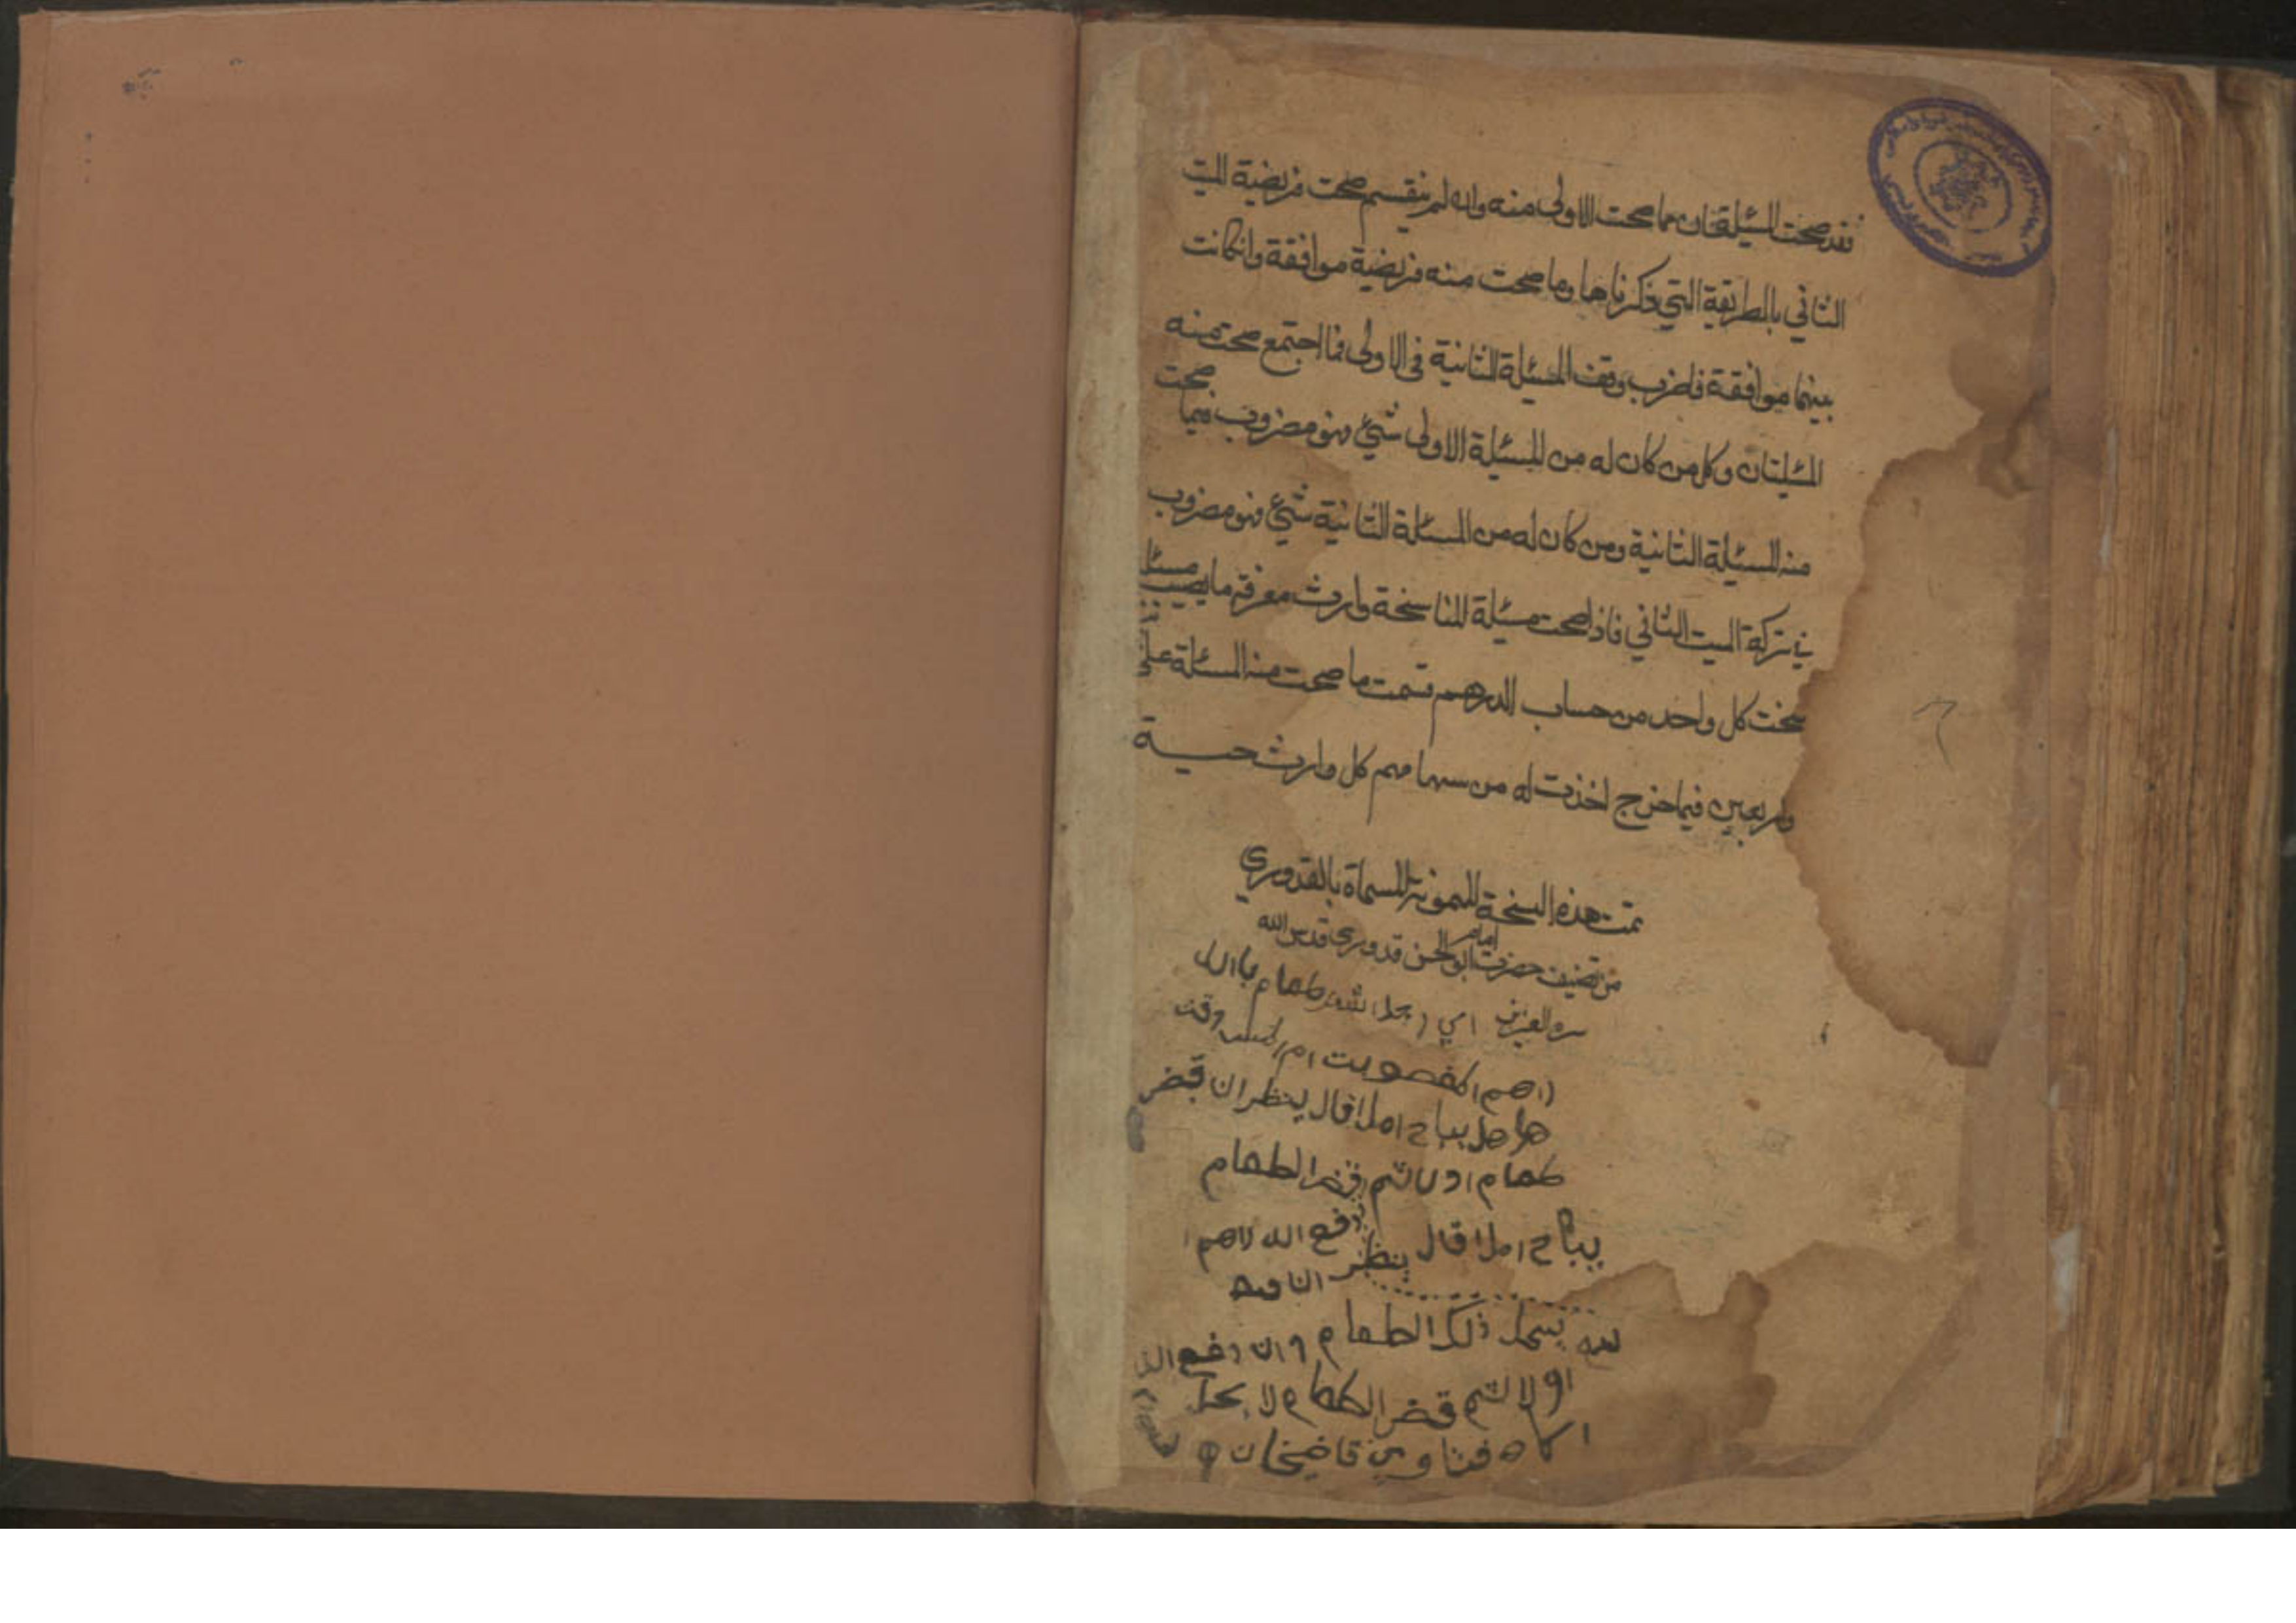 فقد صحت المسئلتان مما صحت الاولى منه وان لم ينقسم صحت فريضية الميت
الثاني بالطريقة التي ذكرناها وما صحت منه فريضية موافقة وانكانت
بينهما موافقة فاضرب وفق المسئلة الثانية فى الاولى فما اجتمع صحت منه
المسئلتان وكل من كان له من المسئلة الاولى شئ فهو مضروب فيما صحت
منه المسئلة الثانية ومن كان له من المسئلة الثانية شئ فهو مضروب
في تركة الميت الثاني فاذا صحت مسئلة المناسخة وارث معرفة ما يصيب
كل واحد من حساب الدرهم قسمت ما صحت منه المسئلة على
واربعين فيما خرج اخذت له من سهام كل وارث حسبة
تمت هذه النسخة الميمونة المسماة بالقدوري
من تصنيف حضرت امام ابو الحسن قدوري قدس الله
سره العزيز اي رجل اشتر طعام باالد
راهم المغصوبت ام
هل يباح املا قال ينظر ان قبض
طعام اولا ثم الطعام
يباح املا قال ينظر دفع الدراهم
ان
ذلك الطعام وان دفع
اولا ثم قبض الطعام لا يحل
اكله فتاوي قاضيخان